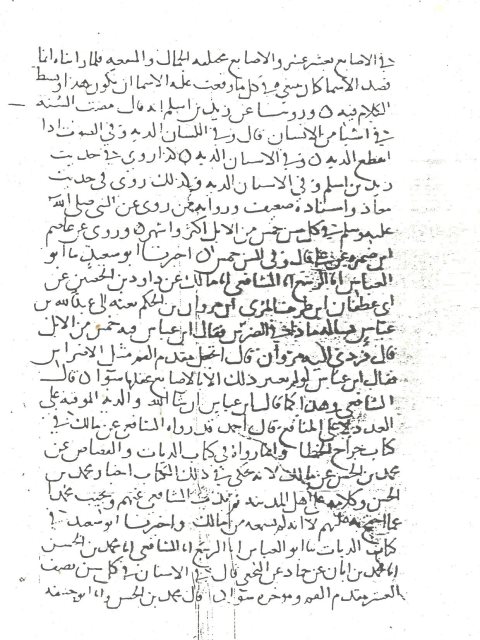 في الاصابع بعشر عشر والاصابع مختلفة الجمال والمنفعة فلما راينا انما
قصد الاسما كان ينبغي في كل ما وقعت عليه الاسما ان يكون هكذا وبسط
الكلام فيه وروينا عن زيد بن اسلم انه قال مضت السنة
في اشيا من الانسان قال وفي اللسان الدية وفي الصوت اذا
انقطع الدية وفي الاسنان الدية كذا روي في حديث
زيد بن اسلم وفي الاسنان الدية وكذلك روي في حديث
معاذ واسناده ضعيف ورواية من روى عن النبي صلى الله
عليه وسلم في كل سن خمس من الابل اكثر واشهر وروي عن عاصم
ابن ضمرة عن علي قال وفي السن خمس اخبرنا ابو سعيد نا ابو
العباس انا الربيع انا الشافعي انا مالك عن داود بن الحصين عن
ابي غطفان ابن طريف المري ان مروان بن الحكم بعثه الى عبد الله بن
عباس يساله ماذا في الضرس فقال ابن عباس فيه خمس من الابل
قال فردني اليه مروان قال اتجعل مقدم الفم مثل الاضراس
فقال ابن عباس لولم تعتبر ذلك الا بالاصابع عقلها سوا قال
الشافعي وهذا كما قال ابن عباس ان شا الله والدية الموقتة على
العدد لا على المنافع قال احمد قد رواه الشافعي عن مالك في
كتاب جراح الخطا وانما رواه في كتاب الديات والقصاص عن
محمد بن الحسن عن مالك لانه حكى في ذلك الكتاب اختيار محمد بن
الحسن وكلامه على اهل المدينة ثم الشافعي عنهم ويجيب محمدا
عما احتج به عليهم لا انه لم يسمعه من مالك واخبرنا ابو سعيد في
كتاب الديات نا ابو العباس انا الربيع انا الشافعي انا محمد بن الحسن
انا محمد بن ابان عن حماد عن النخعي قال في الاسنان في كل سن نصف
العشر مقدم الفم وموخره سوا قال محمد بن الحسن وانا ابو حنيفة